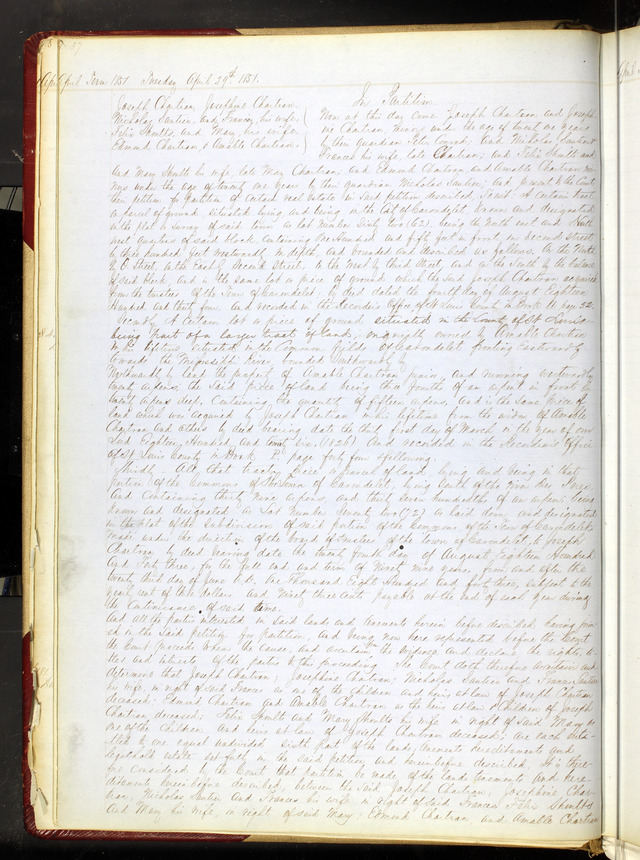 April Term 1851. Tuesday April 29th 1851.
Joseph Chartran, Josephine Chartran,
Nicholas Santier, and Frances, his wife,
Felix Shults, and Mary, his wife,
Edmund Chartran, & Amable Chartran
In Partition
Now at this day come Joseph Chartran and Joseph-
ine Chartran, minors under the age of twenty one years
by their guardian and Nicholas Santier
Frances his wife, late Chartran; and Felix Shults and
and Mary Shults his wife, late Mary Chartran; and Edmund Chartran and Amable Chartran mi-
nors under the age of twenty one years by their guardian Nicholas Santier; and present to the Court
their petition for Partition of certain real estate in said petition described, to wit: A certain lot
or parcel of ground situated, lying and being in the City of Carondelet known and designated
on the plat or survey of said town as lot number Sixty two (62), being the North east and North
west quarters of said block, containing one hundred and fifty feet in front on Second Street
by three hundred feet westwardly in depth, and bounded and described as follows: On the North
by Street, to the East by Second Street, to the West by Third Street and on the South by the
of said block, and is the same lot or piece of ground which the said Joseph Chartran acquired
from the trustees of the Town of Carondelet by deed dated the day of August Eighteen
hundred and thirty four, and recorded in the Recorder's Office of St Louis County in Book page 52.
Secondly. A certain lot or piece of ground situated in the County of St Louis
being part of a larger tract of land, originally owned by Amable Chartran
in his lifetime situated in the Common fields of Carondelet fronting Eastwardly
towards the Mississippi River bounded Southwardly by
Northwardly by land the property of Amable Chartran and running westwardly
twenty arpens, the said piece of land being three fourth of an arpent in front by
twenty arpens deep, containing the quantity of fifteen arpens, and is the same piece of
land which was acquired by Joseph Chartran in his lifetime from the widow of Amable
Chartran and others by deed bearing date the first day of March in the year of our
Lord Eighteen Hundred, and twenty six, (1826) and recorded in the Recorder's Office
of St Louis County in Book page forty four & following;
Thirdly. All that tract, piece or parcel of land, lying and being in that
portion of the Commons of the Town of Carondelet, lying South of the River des Peres,
and containing thirty nine arpens and thirty seven hundredths of an arpent, being
known and designated as Lot Number Seventy two (72) as laid down and designated
on the plat of the Subdivision of said portion of the Commons of the Town of Carondelet,
made under the direction of the board of trustees of the town of Carondelet, to Joseph
Chartran by deed bearing date the twenty fourth day of August Eighteen Hundred
and forty three, for the full end and term of Ninety nine years, from and after the
twenty third day of June A.D. One Thousand Eight Hundred and forty three, subject to the
yearly rent of dollars and Ninety three cents payable at the end of each year during
the continuance of said term.
And all the parties interested in said lands and tenements herein before described, having join-
ed in the said petition for partition, and being now here represented before the Court
the Court proceeds to hear the cause, and ascertain from the evidence and declare the rights, ti-
tles and interests of the parties to this proceeding. The Court doth therefore ascertain and
determine that Joseph Chartran; Josephine Chartran; Nicholas Santier and Frances Santier
his wife, in right of said Frances as one of the children and heirs at law of Joseph Chartran
deceased; Edmund Chartran and Amable Chartran as the heirs at law & children of Joseph
Chartran deceased; Felix Shults and Mary Shults his wife in right of said Mary as
one of the children and heirs at law of Joseph Chartran deceased; are each enti-
tled to one equal undivided sixth part of the lands, tenements hereditaments and
real estate set forth in the said petition and herein before described, It is there-
fore considered by the Court that partition be made of the lands tenements and here-
ditaments herein before described, between the said Joseph Chartran; Josephine Char-
tran; Nicholas Santier and Frances his wife in right of said Frances; Felix Shults
and Mary his wife, in right of said Mary; Edmund Chartran and Amable Chartran